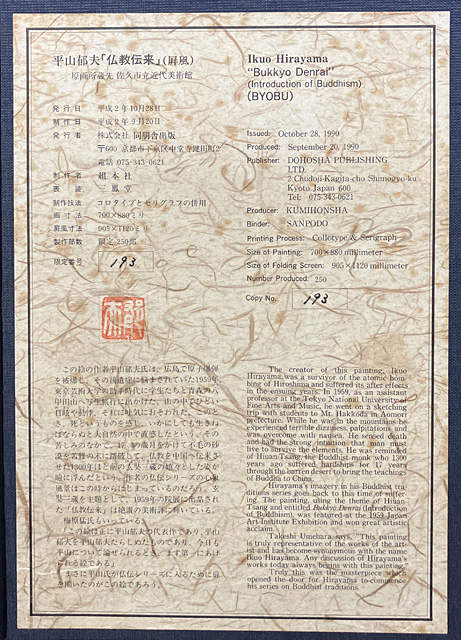 平山郁夫「仏教伝来」(屏風)
原画所蔵先 佐久市立近代美術館
発行日 平成2年10月28日
制作日 平成2年9月20日
発行者 株式会社 同朋舎出版
〒600 京都市下京区中堂寺鍵田町2
電話 075-343-0621
制作者 組本社
表装 三鳳堂
制作技法 コロタイプとセリグラフの併用
画寸法 700×880ミリ
屏風寸法 905×1120ミリ
製作部数 限定250部
限定番号 193
Ikuo Hirayama
"Bukkyo Denrai"
(Introduction of Buddhism)
(BYOBU)
Issued: October 28, 1990
Produced: September 20, 1990
Publisher: DOHOSHA PUBLISHING
LTD.
2 Chudoji-Kagita-cho Shimogyo-ku
Kyoto, Japan 600
Tel: 075-343-0621
Producer: KUMIHONSHA
Binder: SANPODO
Printing Process: Collotype & Serigraph
Size of Painting: 700×880 millimeter
Size of Folding Screen: 905×1120 millimeter
Number Produced: 250
Copy No. 193
この絵の作者平山郁夫氏は、広島で原子爆弾
を被爆し、その後遺症に悩まされていた1959年、
東京芸術大学の助手時代に学生たちと青森の八
甲田山へ写生旅行に出かけた。山の中でひどい
目眩や動悸、それに吐気におそわれた。このと
き、死というものを感じ、いかにしても生きね
ばならぬと大自然の中で直感したという。その
苦しみのなかで、17年の歳月をかけて不毛の砂
漠を苦難の末に踏破して、仏教を中国へ伝来さ
せた1300年ほど前の玄奘三蔵の雄々とした姿が
絵に浮んだという。作者の仏伝シリーズの心象
風景はこの時からはじまっているのだろう。玄
奘三蔵を主題として、1959年の院展に出品され
た「仏教伝来」は絶讃の美術評に輝いている。
梅原猛氏もいっている。
「この絵は正に平山郁夫の代表作であり、平山
郁夫を平山郁夫たらしめたものであり、今日も
平山について論ぜられるとき、まず第一にあげ
られる絵である」
まさに平山氏が仏伝シリーズに入るために扉
を開いたのがこの絵であろう。
The creator of this painting, Ikuo
Hirayama, was a survivor of the atomic bom-
bing of Hiroshima and suffered its after effects
in the ensuing years. In 1959, as an assistant
professor at the Tokyo National University of
Fine Arts and Music, he went on a sketching
trip with students to Mt. Hakkoda in Aomori
prefecture. While he was in the mountains he
experienced terrible dizziness, palpitations, and
was overcome with nausea. He sensed death
and had the strong intuition that man must
live to survive the elements. He was reminded
of Hiuan Tsang, the Buddhist monk who 1300
years ago suffered hardships for 17 years
through the barren desert to bring the teachings
of Buddha to China.
Hirayama's imagery in his Buddhist tra-
ditions series goes back to this time of suffer-
ing. The painting, using the theme of Hiuan
Tsang and entitled Bukkyo Denrai (Introduction
of Buddhism), was featured at the 1959 Japan
Art Institute Exhibition and won great artistic
acclaim.
Takeshi Umehara says, "This painting
is truly representative of the works of the art-
ist and has become synonymous with the name
Ikuo Hirayama. Any discussion of Hirayama's
works today always begins with this painting."
Truly this was the masterpiece which
opened the door for Hirayama to commence
his series on Buddhist traditions.